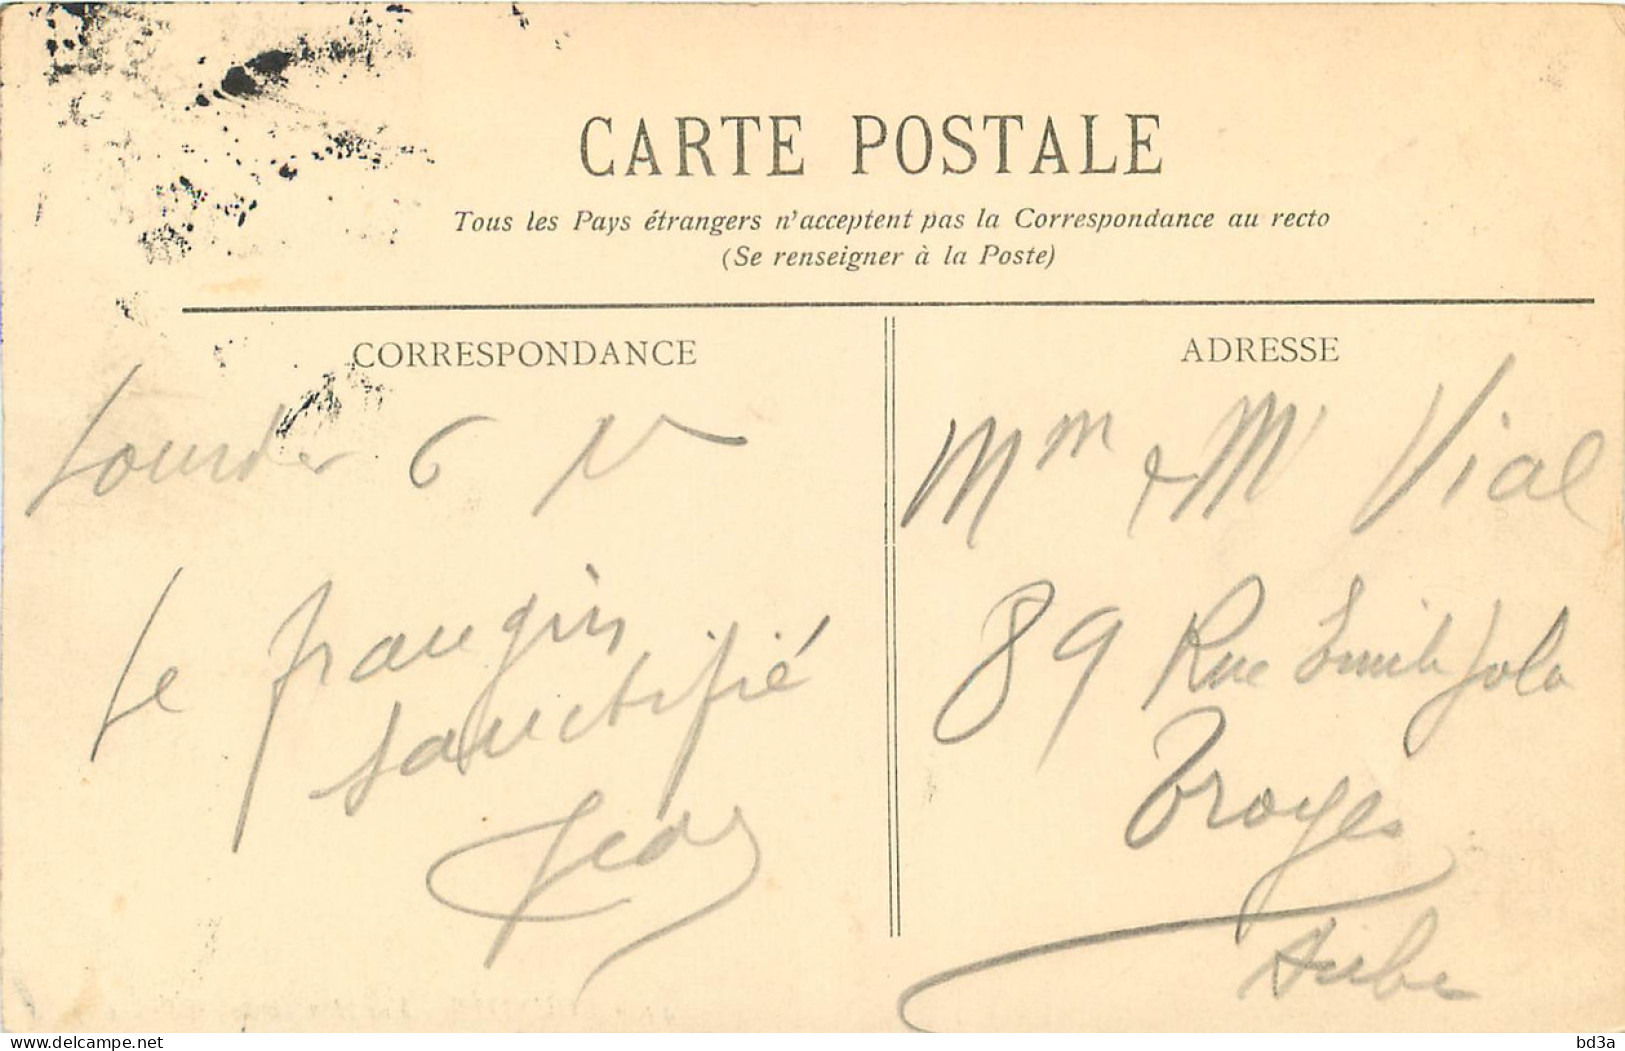 CARTE POSTALE
Tous les Pays étrangers n'acceptent pas la Correspondance au recto
(Se renseigner à la Poste)
CORRESPONDANCE
Lourdes 6
Le frangin
sanctifié
ADRESSE
Mm & Mr Vial
89 Rue Emile Zola
Troyes
Aube
bd3a
https://www.delcampe.net